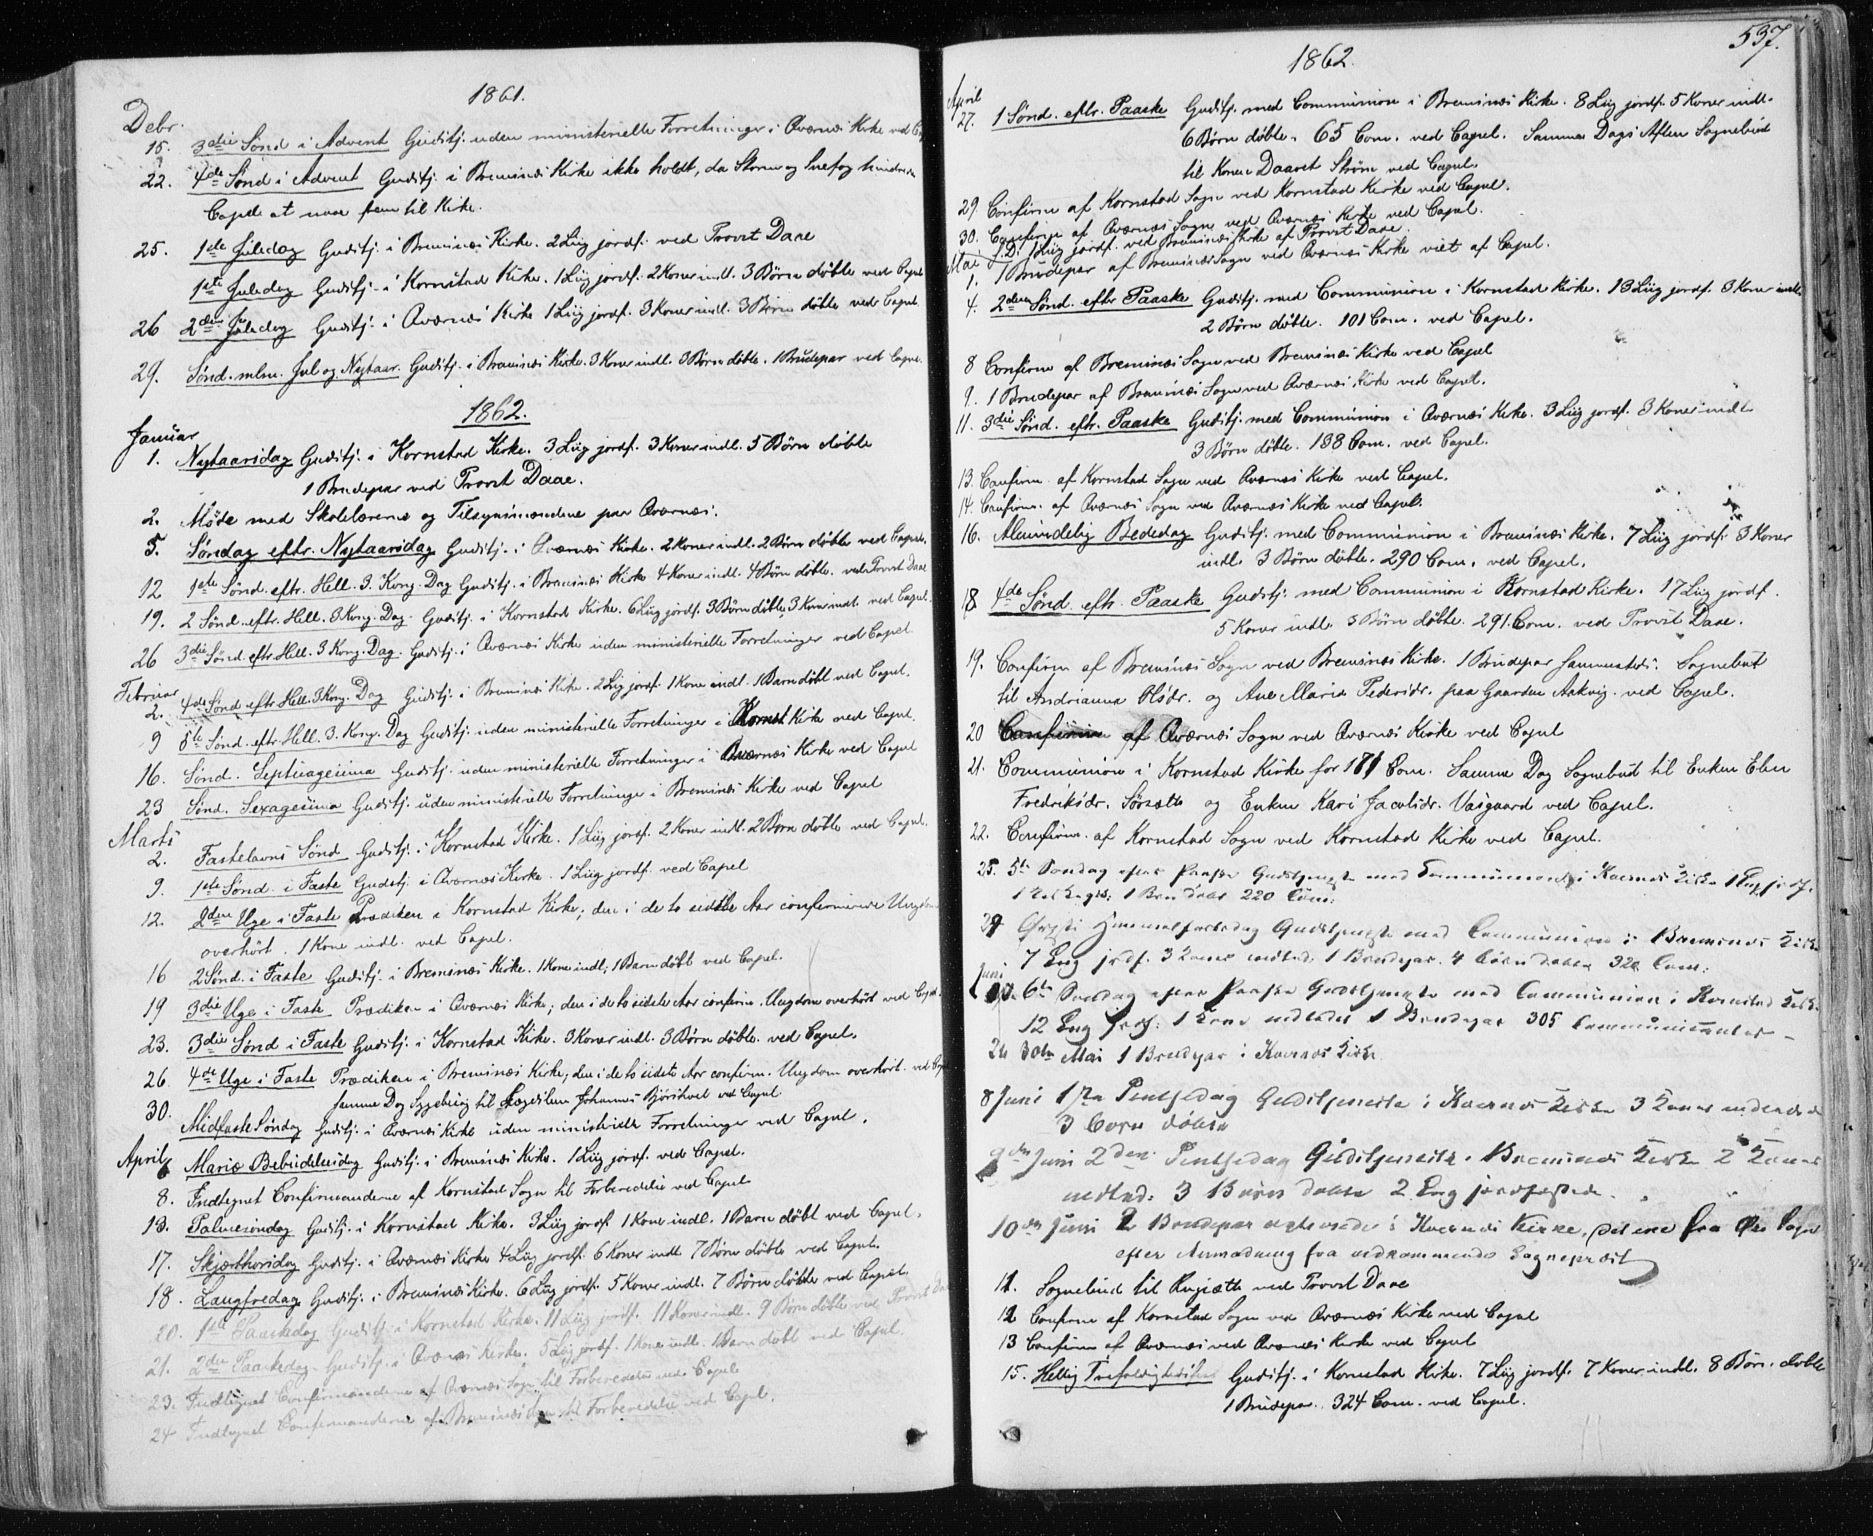 1861.
Debr.
15. 3die Sønd i Advent Gudstj. uden ministerielle Forretninger i Qværnæs Kirke ved
22. 4de Sønd i Advent Gudstj. i Bremsnæs Kirke ikke holdt, da Storm og Snefog hindrede
Capell. at naae frem til Kirke.
25. 1ste Juledag Gudstj. i Bremsnæs Kirke. 2 Liig jordf. ved Provst Daae
1ste Juledag Gudstj. i Kornstad Kirke. 1 Liig jordf. 2 Koner indl. 3 Børn døbte ved Capel
26 2den Juledag Gudstj. i Qværnæs Kirke 1 Liig jordf. 3 Koner indl. 3 Børn døbte ved Capel
29. Sønd. mlm. Jul og Nytaar. Gudstj. i Bremsnæs Kirke. 3 Koner indl. 3 Børn døbte. 1 Brudepar ved Capel.
1862.
Januar
1. Nytaarsdag Gudstj. i Kornstad Kirke. 3 Liig jordf. 3 Koner indl. 5 Børn døbte
1 Brudepar ved Provst Daae.
2. Møde med Skolelærerne og Tilsynsmændene paa Qværnæs.
5. Søndag eftr. Nytaarsdag Gudstj. i Qværnæs Kirke. 2 Koner indl. 2 Børn døbte ved Capel.
12 1ste Sønd. eftr. Hell. 3. Kong. Dag Gudstj. i Bremsnæs Kirke 4 Koner indl. 4 Børn døbte. ved Provst Daae
19. 2 Sønd. eftr. Hell. 3 Kong. Dag. Gudstj. i Kornstad Kirke. 6 Liig jordf. 3 Børn døbte, 3 Koner indl. ved Capel.
26 3die Sønd. eftr. Hell. 3 Kong. Dag. Gudstj. i Qværnæs Kirke uden ministerielle Forretninger ved Capel.
Februar
2. 4de Sønd eftr Hell. 3 Kong. Dag Gudstj. i Bremsnæs Kirke. 2 Liig jordf. 1 Kone indl. 1 Barn døbt ved Capel.
9 5te Sønd. eftr. Hell. 3. Kong. Dag Gudstj. uden ministerielle Forretninger i Kornst Kirke ved Capel.
16. Sønd. Septuagesima Gudstj. uden ministerielle Forretninger i Qværnæs Kirke ved Capel
23 Sønd. Sexagesima Gudstj. uden ministerielle Forretninger i Bremsnæs Kirke ved Capel
Marts
2. Fastelavns Sønd Gudstj. i Kornstad Kirke. 1 Liig jordf. 2 Koner indl. 2 Børn døbte ved Capel.
9. 1ste Sønd. i Faste Gudstj. i Qværnæs Kirke. 1 Liig jordf. ved Capel
12. 2den Uge i Faste Prædiken i Kornstad Kirke; den i de to sidste Aar confirmerede Ungdom
overhört. 1 Kone indl. ved Capel.
16 2 Sønd. i Faste Gudstj. i Bremsnæs Kirke. 1 Kone indl; 1 Barn døbt ved Capel.
19 3die Uge i Faste Prædiken i Qværnæs Kirke; den i de to sidste Aar confirm. Ungdom overhört ved Capel.
23. 3die Sønd i Faste Gudstj. i Kornstad Kirke. 3 Koner indl. 3 Børn døbte. ved Capel.
26. 4de Uge i Faste Prædiken i Bremsnæs Kirke; den i de to sidste Aar confirm. Ungdom overhört. ved
samme Dag Sygebesøg til Johannes ved Capel
30. Midfaste Søndag Gudstj. i Qværnæs Kirke uden ministerielle Forretninger ved Capel.
April
6 Mariæ Bebudelsesdag Gudstj. i Bremsnæs Kirke. 1 Liig jordf. ved Capel.
8. Indtegnet Confirmanderne af Kornstad Sogn til Forberedelse ved Capel
13. Palmesøndag Gudstj. i Kornstad Kirke. 3 Liig jordf. 1 Kone indl. 1 Barn døbt ved Capel.
17. Skjærthorsdag Gudstj. i Qværnæs Kirke 4 Liig jordf. 6 Koner indl. 7 Børn døbte ved Capel.
18. Langfredag Gudstj. i Bremsnæs Kirke. 6 Liig jordf. 5 Koner indl. 7 Børn døbte ved Capel.
20. 1ste Paaskedag Gudstj. i Kornstad Kirke. 11 Liig jordf. 11 Koner indl. 9 Børn døbte ved Provst Daae
21. 2den Paaskedag. Gudstj. i Qværnæs Kirke. 5 Liig jordf. 1 Kone indl. 1 Barn døbt ved Capel.
23. Indtegnet Confirmanderne af Qværnæs Sogn til Forberedelse ved Capel
24 Indtegnet Confirmanderne af Bremsnæs Sogn til Forberedelse ved Capel.
537.
1862.
April
27. 1 Sønd. eftr. Paaske Gudstj. med Communion i Bremsnæs Kirke. 8 Liig jordf. 5 Koner indl.
6 Børn døbte. 65 Com. ved Capel. Samme Dags Aften Sognebud
til Konen Daaret Strøm ved Capel.
29. Confirm af Kornstad Sogn ved Kornstad Kirke ved Capel.
30. Confirm af Qværnæs Sogn ved Qværnæs Kirke ved Capel.
S.D. 1 Liig jordf. ved Bremsnæs Kirke af Provst Daae.
Mai
1. 1 Brudepar af Bremsnæs Sogn ved Qværnæs Kirke viet af Capel.
4. 2den Sønd. eftr Paaske Gudstj. med Communion i Kornstad Kirke. 13 Liig jordf. 3 Koner indl.
2 Børn døbte. 101 Com. ved Capel.
8 Confirm af Bremsnæs Sogn ved Bremsnæs Kirke ved Capel
9. 1 Brudepar af Bremsnæs Sogn ved Qværnæs Kirke ved Capel.
11. 3die Sønd. eftr. Paaske Gudstj. med Communion i Qværnæs Kirke. 3 Liig jordf. 3 Koner indl.
3 Børn døbte. 138 Com. ved Capel.
13. Confirm. af Kornstad Sogn ved Qværnæs Kirke ved Capel.
14. Confirm. af Qværnæs Sogn ved Qværnæs Kirke ved Capel.
16. Almindelig Bededag Gudstj. med Communion i Bremsnæs Kirke. 7 Liig jordf. 3 Koner
indl. 3 Børn døbte. 290 Com. ved Capel.
18 4de Sønd. eftr. Paaske Gudstj. med Communion i Kornstad Kirke. 17 Liig jordf.
5 Koner indl. 3 Børn døbte. 291. Com. ved Provst Daae.
19. Confirm af Bremsnæs Sogn ved Bremsnæs Kirke. 1 Brudepar sammesteds. Sognebut
til Andrianna Olsdr. og Ane Maria Pedersdr. paa Gaarden Aakvig. ved Capel.
20 Confirm af Qværnæs Sogn ved Qværnæs Kirke ved Capel
21. Communion i Kornstad Kirke for 171 Com. Samme Dag Sognebud til Enken Elen
Fredriksdr. Sørsætte og Enken Kari Jacobsdr. Vasgaard ved Capel.
22. Confirm. af Kornstad Sogn ved Kornstad Kirke ved Capel.
25. 5te Søndag efter Paaske Gudstjeneste med Communion i Kirke 1 Liig jordf.
1 Brudepar 220 Com:
29 Christi Himmelfartsdag Gudstjeneste med Communion i Bremsnes Kirke
7 Liig jordf. 3 Koner indled. 1 Brudepar. 4 Børn døbte 320 Com:
Juni
1. 6te Søndag efter Paaske Gudstjeneste med Communion i Kornstad Kirke.
12 Liig jordf: 1 Kone indledet 1 Brudepar 305 Communicanter
30te Mai 1 Brudepar i Kirke
8 Juni 1ste Pintsedag Gudstjeneste i Kirke 3 Koner indledede
3 Børn døbte
9de Juni 2den Pintsedag Gudstjeneste. Bremsnes Kirke 2 Koner
indled: 3 Børn døbte 2 Liig jordfæstede.
10de Juni 2 Brudepar i Kirke, det ene fra Sogn
efter Anmodning fra vedkommende Sognepræst
11. Sognebud til ved Provst Daae
12 Confirm af Kornstad Sogn ved Qværnæs Kirke ved Capel
13 Confirm af Qværnæs ved Qværnæs Kirke ved Capel
15. Hellig Trefoldighedsfest Gudstj. i Kornstad Kirke. 7 Liig jordf. 7 Koner indl. 8 Børn døbte
1 Brudepar. 324 Com. ved Capel.